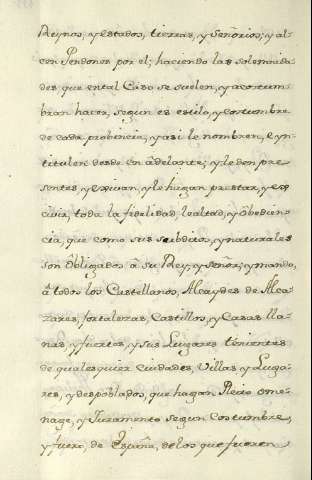 Reynos, y estados, tierras, y Señorios; y al
cen Pendones por el; haciendo las solemnida
des que en tal Caso se suelen, y acostum
bran hacer, segun es estilo, y costumbre
de cada probincia, y asi le nombren, e yn
titulen desde en âdelante; y le den pre
senten y exivan, y le hagan prestar, y ex
civir, toda la fidelidad, lealtad, y ôbedien
cia, que como sus subditos, y naturales
son ôbligados â su Rey, y señor; y mando,
â todos los Castellanos, Alcaydes de Alca
zares, fortalezas, Castillos, y Casas lla
nas, y fuertes, y sus Lugares tenientes
de qualesquier Ciudades, Villas y Luga
res, y despoblados, que hagan Pleito ome
nage, y Juramento segun Costumbre,
y fuero, de España, de los que fueren